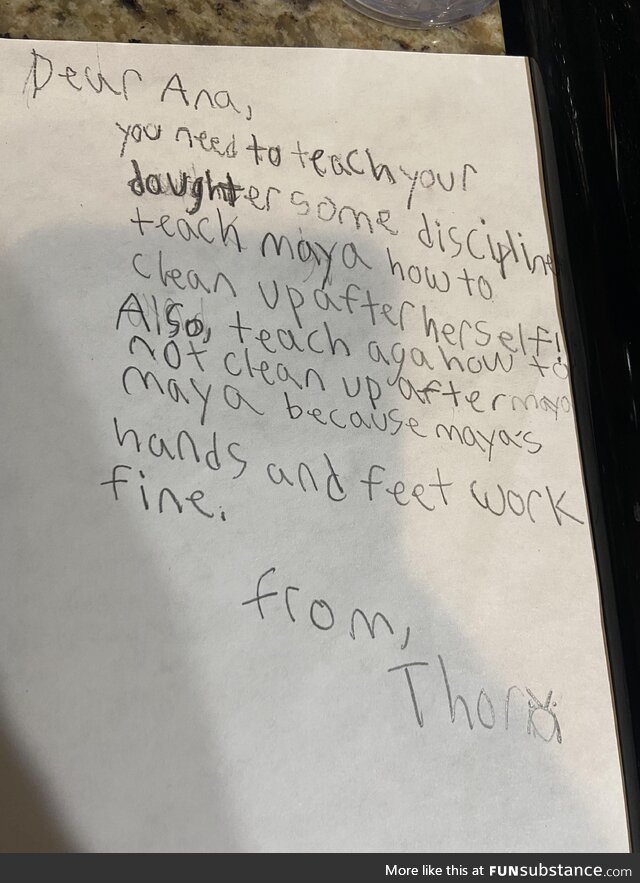 Dear Ana,
you need to teach your
daughter some discipline
teach maya how to
clean up after herself!
Also, teach aga how to
not clean up after maya
maya because maya's
hands and feet work
fine.
from,
Thora
More like this at FUNsubstance.com